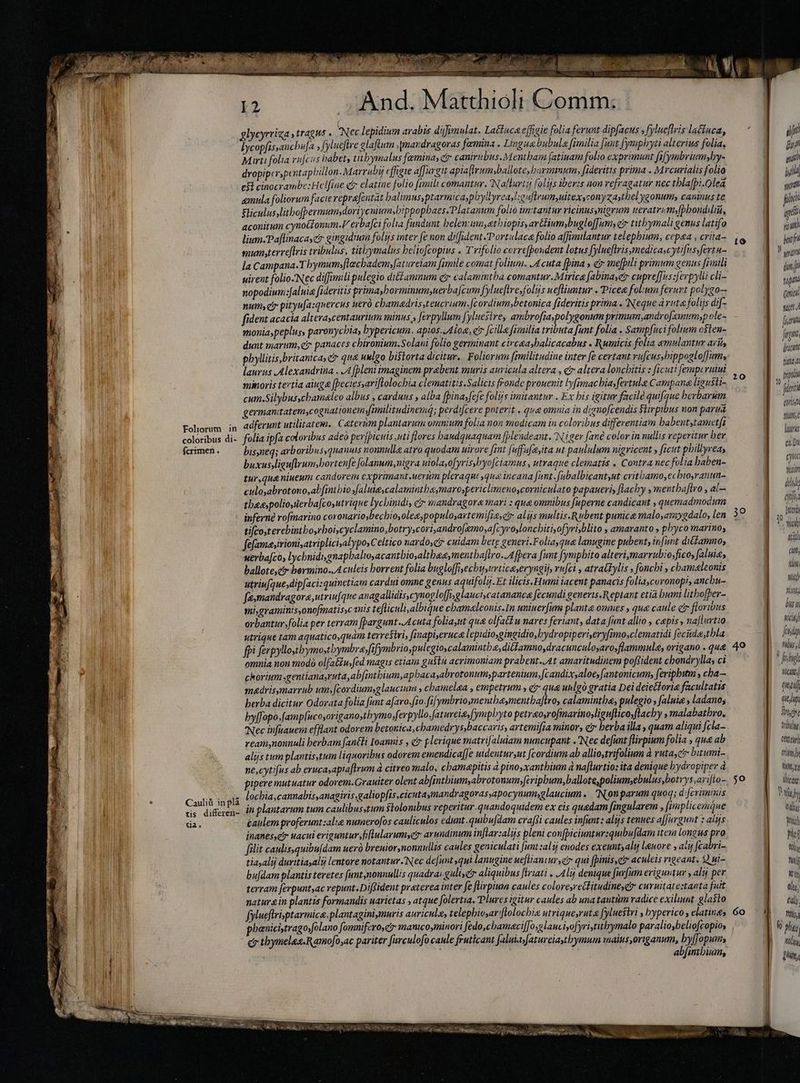 12 And. Matthioli Comm.
glycyrriza, tragus. Nec lepidium arabis dissimulat. Lactucæ effigie folia ferunt dipsacus, sylvestris lactuca,
lycopsis, anchusa, sylvestre glastum, mandragoras fœmina. Linguæ bubulæ similia sunt symphyti alterius folia,
Myrti folia ruscus habet, tithymalus fœmina, & canirubus. Mentham sativam folio exprimunt sisymbrium, hy-
dropiper, pentaphillon. Marrubij effigie assurgit apiastrum, ballote, horminum, sideritis prima. Mercurialis folio
est cinocrambe: Helsine & clatine folio simili comantur. Nasturtij folijs iberis non refragatur nec thlaspi. Oleæ
æmula foliorum facie repræsentāt halimus, ptarmica, phyllyrea, ligustrum, vitex, conyza, thelygonum, caninus te
sticulus, lithospermum, dorigcnium, hippophaes. Platanum folio imitantur ricinus, nigrum veratrum, sphondilii,
aconitum cynoctonum. Verbasci folia fundunt helenium, æthiopis, arctium, buglossum, & tithymali genus latifo
lium. Pastinaca, & gingidium folijs inter se non diffident. Portulacæ folio assimilantur telephium, cepæa, crita-
mum, terrestris tribulus, tithymalus helioscopius. Trifolio correspondent lotus sylvestris, medica, cytisus, fertu-
la Campana. Thymum, stæchadem, satureiam simile comat folium. Acuta spina, & mespili primum genus simili
virent folio. Nec dissimili pulegio dictamnum & calamintha comantur. Mirica sabina, & cupressus: serpylli cli-
nopodium: salvia sideritis prima, horminum, verbascum sylvestre, folijs vestiuntur. Piceæ folium ferunt polygo-
num, & pityusa: quercus verò chamædris, teucrium. scordium, betonica sideritis prima. Neque à ruta folijs dif-
fident acacia altera, centaurium minus, serpyllum sylvestre, ambrosia, polygonum primum, androsæmum, pole-
monia, peplus, paronychia, hypericum. apios. Aloe, & scillæ similia tributa sunt folia. Sampsuci folium osten-
dunt marum, & panaces chironium. Solani folio germinant circæa, halicacabus. Rumicis folia æmulantur aris,
phyllitis, britanica, & quæ vulgo bistorta dicitur. Foliorum similitudine inter se certant ruscus, hippoglossum,
laurus Alexandrina. Aspleni imaginem præbent muris auricula altera, & altera lonchitis: sicuti sempervivi
minoris tertia aiugæ species, aristolochia clematitis. Salicis fronde provenit lysimachia, sertulæ Campanæ ligusti-
cum. Silybus, chamæleo albus, carduus, alba spina, sese folijs imitantur. Ex his igitur facilè quisque herbarum
germanitatem, cognationem, similitudinemq; perdiscere poterit. quæ omnia in dignoscendis stirpibus non paruā
Foliorum in adferunt utilitatem. Cæterùm plantarum omnium folia non modicam in coloribus differentiam habent, tametsi
coloribus di- folia ipsa coloribus adeò perspicuis, uti flores haudquaquam splendeant. Niger sanè color in nullis reperitur her
scrimen. bis, neq; arboribus, quanuis nonnulla atro quodam virore sint suffusa, ita ut paululum nigricent, sicut phillyrea,
buxus, ligustrum, hortense solanum, nigra viola, osyris, hyosciamus, utraque clematis. Contra nec folia haben-
tur, quæ niveum candorem exprimant. verùm pleraque, quæ incana sunt. subalbicant, ut crithamo, echio, ranun-
culo, abrotono, absinthio, salvia, calamintha, maro, periclimeno, corniculato papaueri, stachy, menthastro, al-
thæa, polio, verbasco, utrique lychinidi, & mandragoræ mari: quæ omnibus supernè candicant, quemadmodum
infernè rosmarino coronario, bechio, olea, populo, artemisia, & alijs multis. Rubent punicæ malo, amygdalo, len
tisco, terebintho, rhoi, cyclamino, botry, cori, androsæmo, ascyro, lonchiti, osyri, blito, amaranto, phyco marino,
sesamæ, irioni, atriplici, alypo, Celtico nardo, & cuidam betæ generi. Folia, quæ lanugine pubent, insunt dictamno,
verbasco, lychnidi, gnaphalio, acanthio, althææ, menthastro. Aspera sunt symphito alteri, marrubio, fico, salvia,
ballote, & hormino. Aculeis horrent folia buglossi, echy, urtica, eryngij, rusci, atractylis, sonchi, chamæleonis
utriusque, dipsaci: quinetiam cardui omne genus aquifolij. Et ilicis. Humi iacent panacis folia, coronopi, anchu-
sæ, mandragoræ, utriusque anagallidis, cynoglossi, glauci, catanancæ secundi generis. Reptant etiā humi lithosper-
mi, graminis, onosmatis, & canis testiculi, albique chamæleonis. In universum plantæ omnes, quæ caule & floribus
orbantur, folia per terram spargunt. Acuta folia, ut quæ olfactu nares feriant, data sunt allio, cæpis, nasturtio
utrique tam aquatico, quàm terrestri, sinapi, eruca lepidio, gingidio, hydropiperi, erysimo, clematidi secūdæ, thla
spi serpyllo, thymo, thymbra, sisymbrio, pulegio, calamintha, dictamno, dracunculo, yaro, flammulæ, origano. quæ
omnia non modò olfactu, sed magis etiam gustu acrimoniam præbent. At amaritudinem possident chondrylla, ci
chorium, gentiana, ruta, absinthium, aphaca, abrotonum, partenium, scandix, aloe, santonicum, seriphium, cha-
mædris, marrubium, scordium, glaucium, chamelæa, empetrum, & quæ vulgò gratia Dei deiectoria facultatis
herba dicitur Odorata folia sunt asaro, sio, sisymbrio, mentha, menthastro, calaminthæ, pulegio, salvia, ladano,
hyssopo, sampsuco, origano, thymo, serpyllo, satureia, symphyto petræo, rosmarino, ligustico, stachy, malabatbro.
Nec insuavem efflant odorem betonica, chamedrys, baccaris, artemisia minor, & herba illa, quam aliqui scla-
ream, nonnuli herbam sancti Ioannis, & plerique matrisalviam nuncupant. Nec desunt stirpium folia, quæ ab
alijs tum plantis, tum liquoribus odorem emendicasse videntur, ut scordium ab allio, trifolium à ruta, & bitumi-
ne, cytisus ab eruca, apiastrum à citreo malo, chamæpitis à pino, xanthium à nasturtio: ita denique hydropiper à
pipere mutuatur odorem. Graviter olent absinthium, abrotonum, seriphum, ballote, polium, ebulus, botrys, aristo-
Caulis in plā lochia, cannabis, anagiris, galiopsis, cicuta, mandragoras, apocynum, glaucium. Non parum quoq; discriminis
tis differen- in plantarum tum caulibus, tum stolonibus reperitur. quandoquidem ex eis quædam singularem, simplicemque
tia. caulem proferunt: aliæ numerosos cauliculos edunt. quibusdam crassi caules insunt: alijs tenues assurgunt: alijs
inanes, & vacui eriguntur, fistularum, & arundinum instar: alijs pleni conspiciuntur: quibusdam item longus pro
silit caulis, quibusdam verò brevior, nonnullis caules geniculati sunt: alij enodes exeunt, alij leuore, alij scabri-
tia, alij duritia, alij lentore notantur. Nec desunt, qui lanugine vestiantur, & qui spinis, & aculeis rigeant. Qui-
busdam plantis teretes sunt, nonnullis quadranguli, & aliquibus striati. Alij denique sursum eriguntur, alij per
terram serpunt, ac repunt. Dissident præterea inter se stirpium caules colore, rectitudine, & curvitate: tanta fuit
naturæ in plantis formandis varietas, atque solertia. Plures igitur caules ab una tantùm radice exiliunt glasto
sylvestri, ptarmica. plantagini, muris auriculæ, telephio, aristolochiæ utrique, rutæ sylvestri, hyperico, clatine,
phænici, trago, solano somnifero, & manico, minori sedo, chamæcisso, glauci, osyri, tithymalo paralio, helioscopio,
& thymelæa. Ramoso, ac pariter surculoso caule fruticant salvia, satureia, thymum maius, origanum, hyssopum,
absinthium,
10
20
30
40
50
60